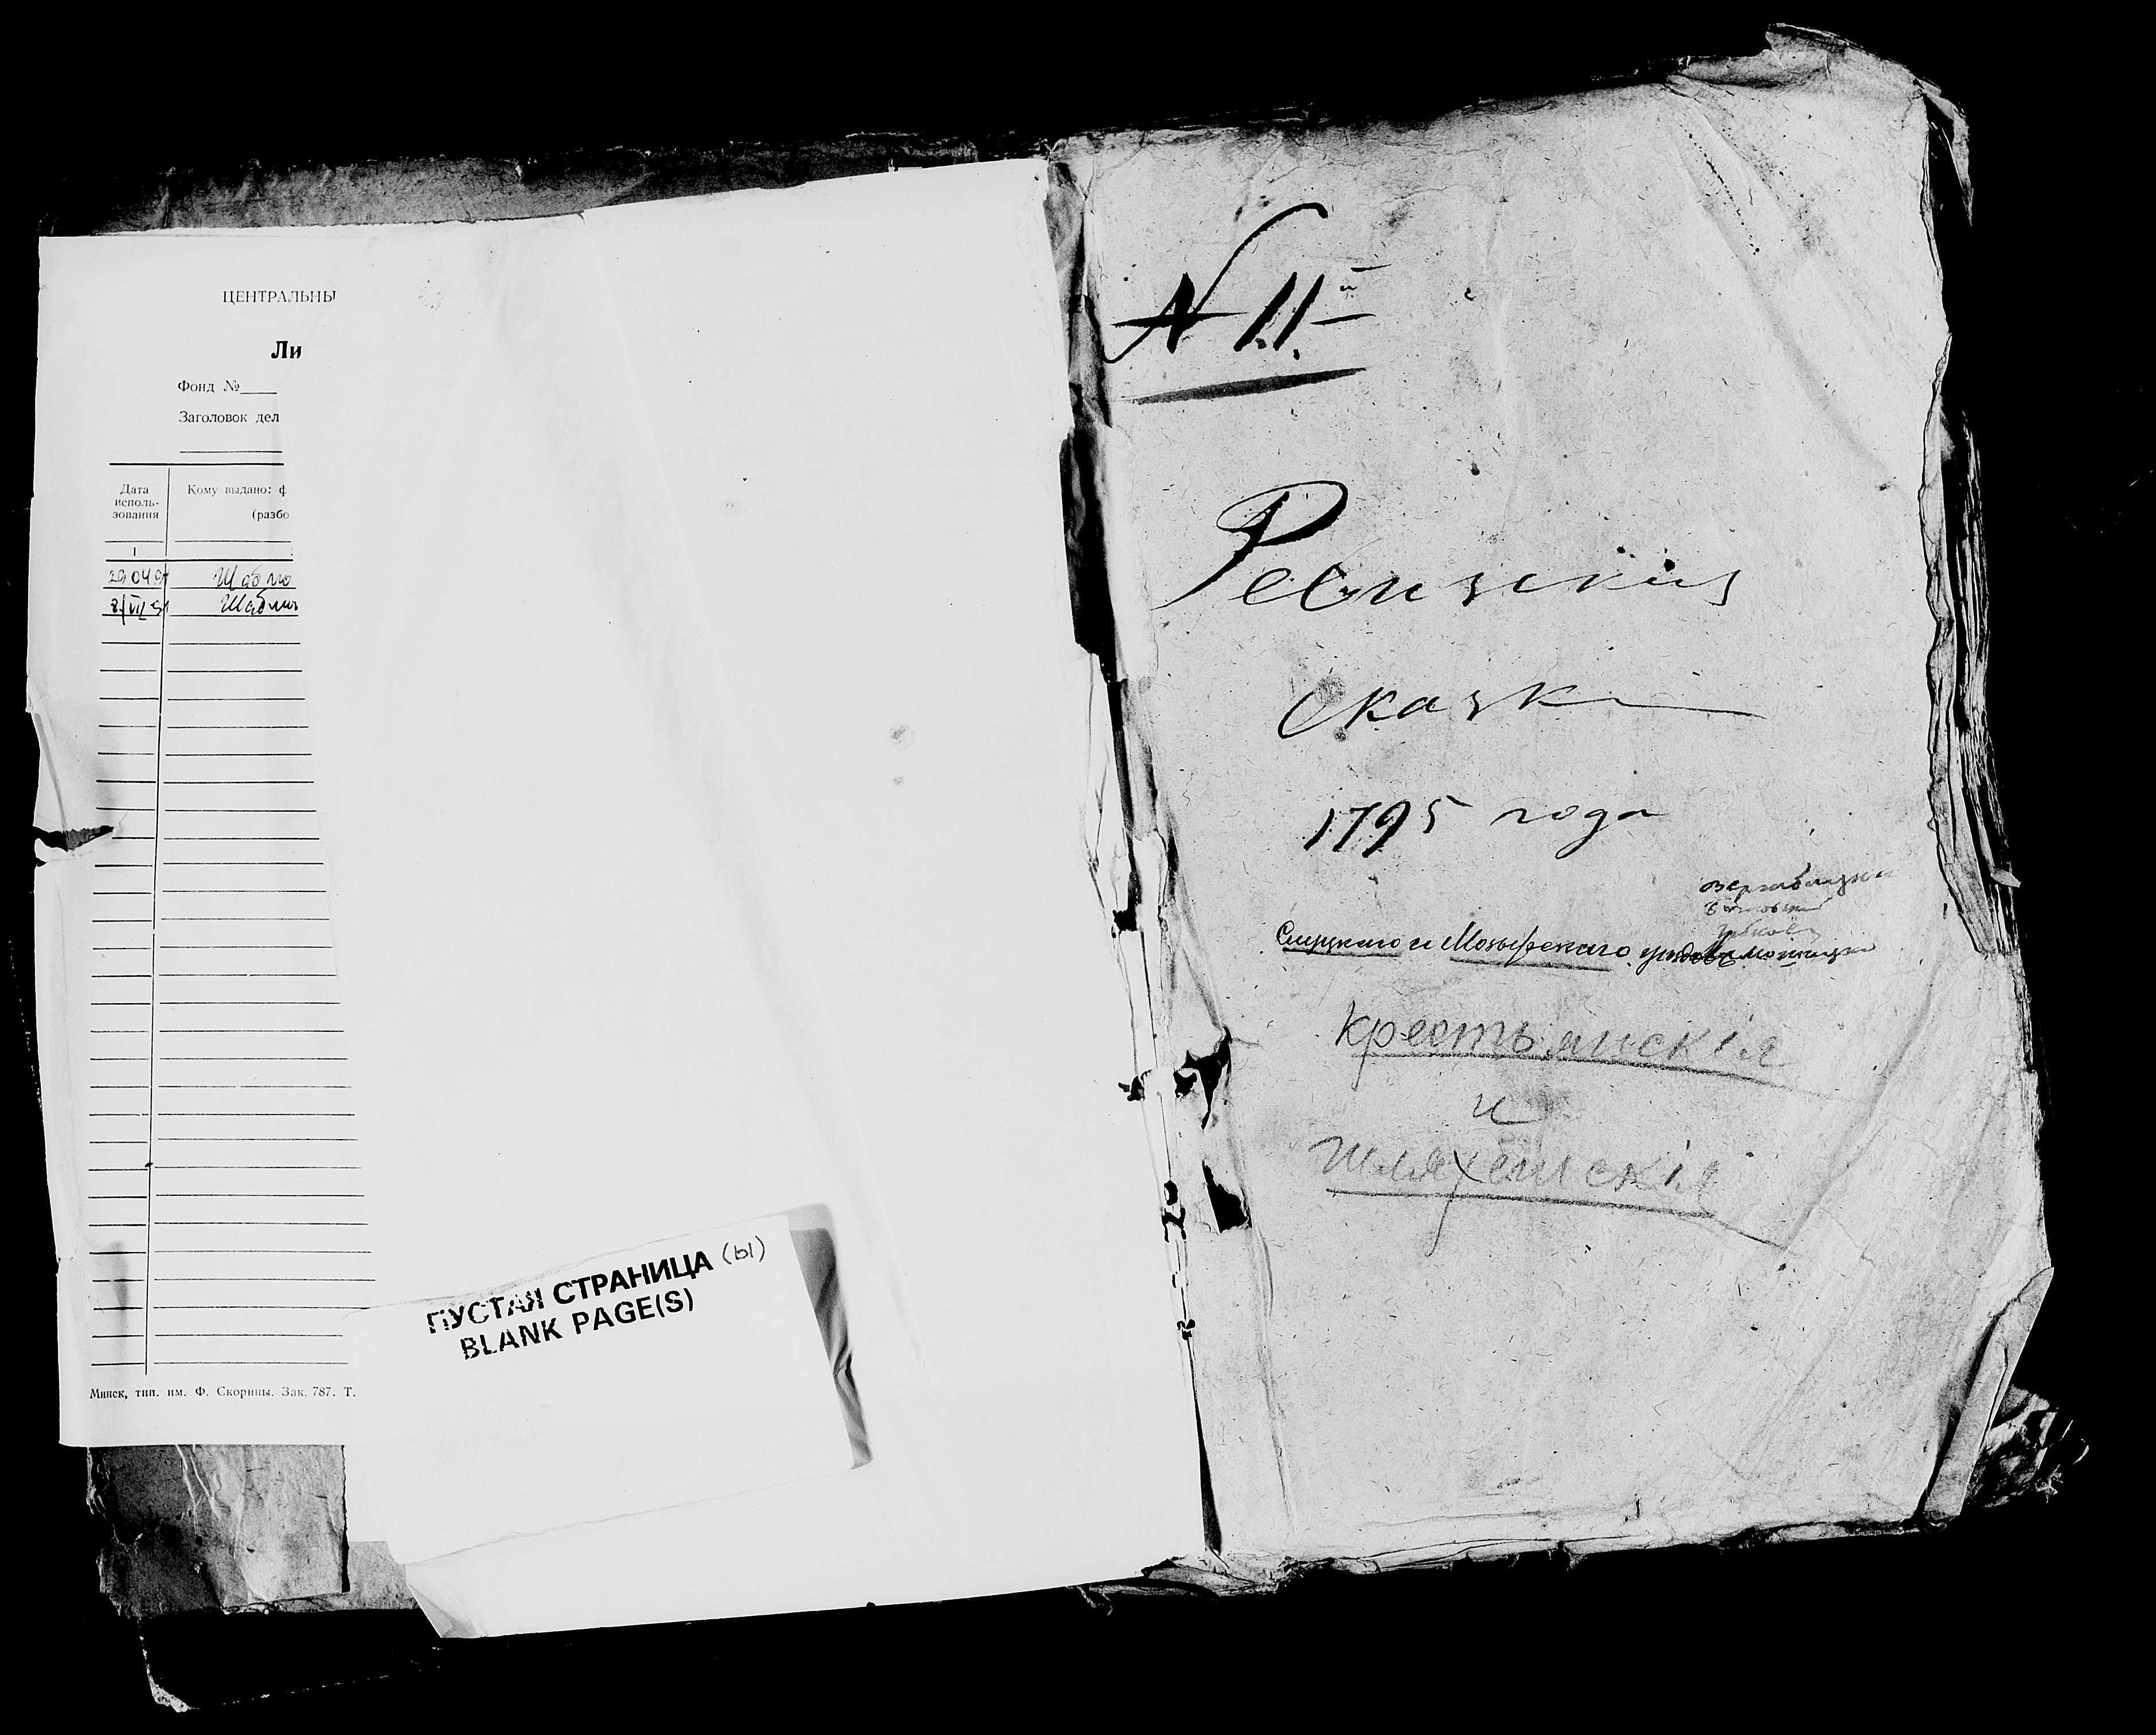 ЦЕНТРАЛЬНЫ
Ли
Фонд №
Заголовок дел
Дата
исполь-
зования
Кому выдано: ф
(разбо
1
29 04 91
8/VII 91
Минск, тип. им. Ф. Скорины. Зак. 787. Т.
ПУСТАЯ СТРАНИЦА (ы)
BLANK PAGE(S)
N 11й
Ревизкия
сказки
1795 года
Слуцкаго и Мозырскаго уездовъ
крестьянскія
и
шляхетскія